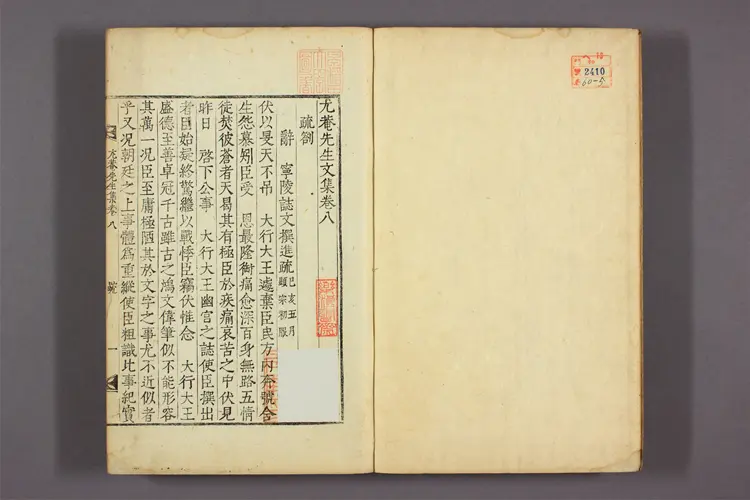 尤菴先生文集卷八
疏劄
辭 寧陵誌文撰進疏 己亥五月 顯宗初服
伏以旻天不吊 大行大王遽棄臣民方內奔號含
生怨慕矧臣受 恩最隆銜痛愈深百身無路五情
徒焚彼蒼者天曷其有極臣於疾痛哀苦之中伏見
昨日 啓下公事 大行大王幽宮之誌使臣撰出
者臣始疑終驚繼以戰悸臣竊伏惟念 大行大王
盛德至善卓冠千古雖古之鴻文偉筆似不能形容
其萬一況臣至庸極陋其於文字之事尤不近似者
乎又況朝廷之上事體爲重縱使臣粗識此事紀實
尤菴先生集卷八 疏 一
2410
60-5